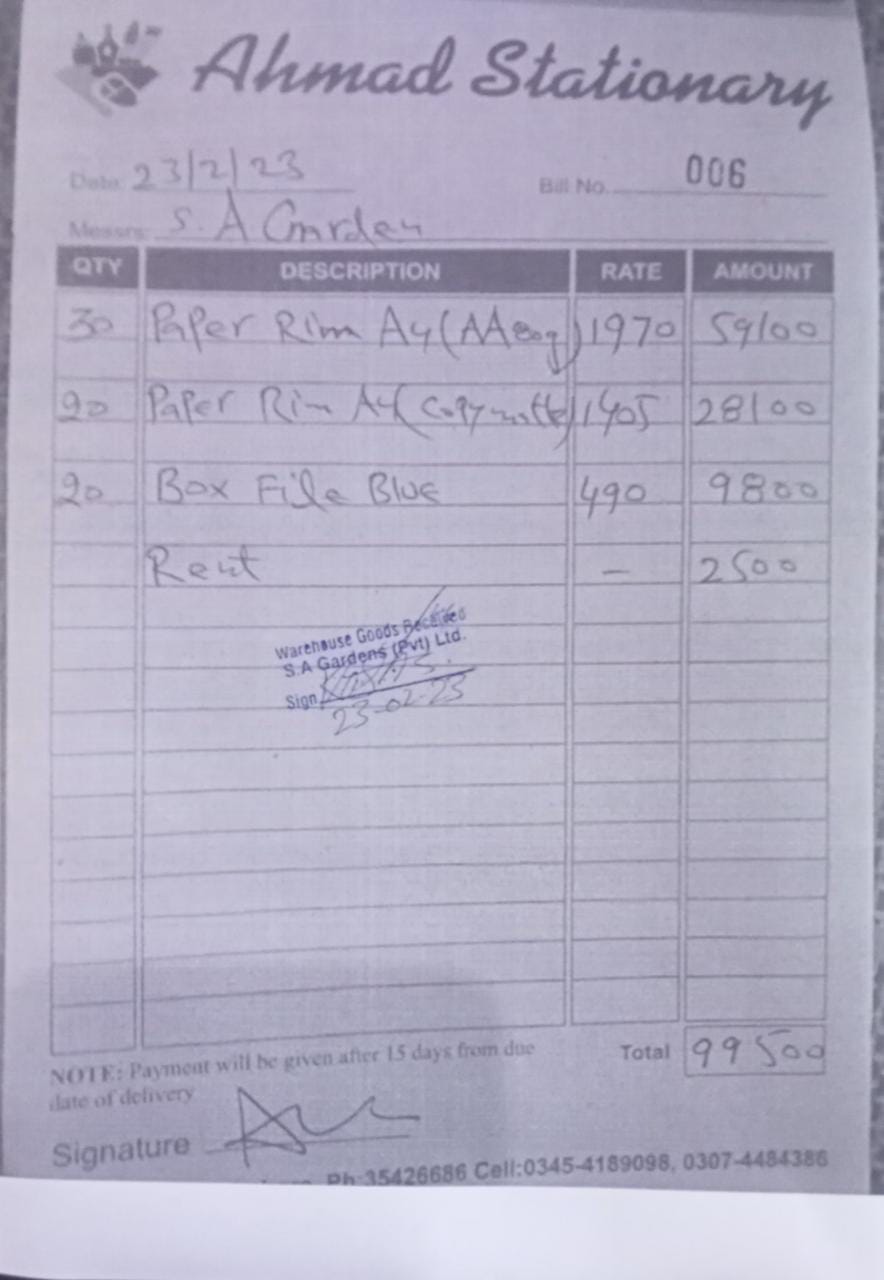 Ahmad Stationary
Date: 23/2/23 Bill No. 006
Messrs: S. A Garden
QTY DESCRIPTION RATE AMOUNT
30 Paper Rim A4 (AA 80g) 1970 59100
20 Paper Rim A4 (Copymate) 1405 28100
20 Box File Blue 490 9800
Rent — 2500
Warehouse Goods Received
S.A Gardens (Pvt) Ltd.
Sign
23-02-23
Total 99500
NOTE: Payment will be given after 15 days from due
date of delivery
Signature
Ph:35426686 Cell:0345-4189098, 0307-4484386